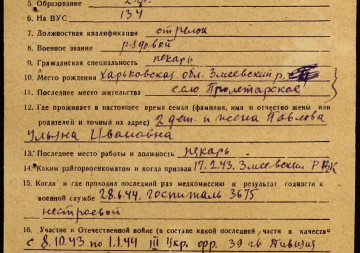 5. Образование 2 гр.
6. На ВУС 134
7. Должностная квалификация стрелок
8. Военное звание рядовой
9. Гражданская специальность пекарь
10. Место рождения Харьковская обл. Змиевский р.
11. Последнее место жительства село Пролетарское
12. Где проживает в настоящее время семья (фамилия, имя и отчество жены или
родителей и точный их адрес) 2 дет. и жена Павлова
Ульяна Ивановна
13. Последнее место работы и должность пекарь
14. Каким райгорвоенкоматом и когда призван 17.2.43. Змиевский РВК
15. Когда и где проходил последний раз медкомиссию и результат годности к
военной службе 28.6.44. госпиталь 3675
нестроевой
16. Участие в Отечественной войне (в составе какой последней части и в качестве
с 8.10.43 по 1.1.44 III Укр. фр. 39 гв дивизия